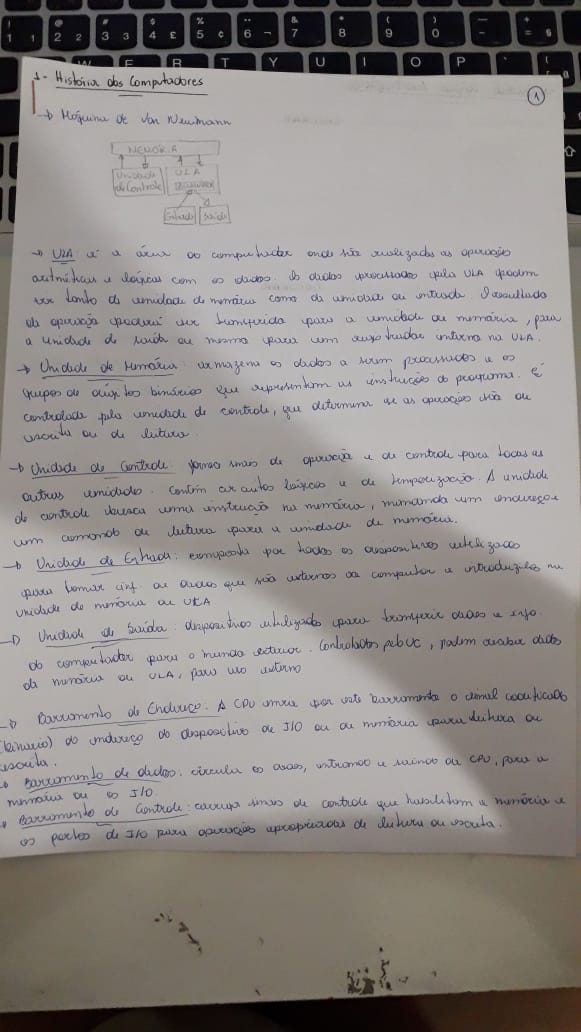 1 - História dos Computadores
1
→ Máquina de Von Neumann
MEMÓRIA
Unidade de Controle
ULA
Entrada
Saída
→ ULA: é a área do computador onde são realizadas as operações
aritméticas e lógicas com os dados. Os dados processados pela ULA podem
ser tanto da unidade de memória como da unidade de entrada. O resultado
da operação poderá ser transferido para a unidade de memória, para
a unidade de saída ou mesmo para um registrador interno na ULA.
→ Unidade de Memória: armazena os dados a serem processados e os
grupos de dígitos binários que representam as instruções do programa. É
controlada pela unidade de controle, que determina se as operações são de
escrita ou de leitura.
→ Unidade de Controle: fornece sinais de operação e de controle para todas as
outras unidades. Contém circuitos lógicos e de temporização. A unidade
de controle busca uma instrução na memória, mandando um endereço e
um comando de leitura para a unidade de memória.
→ Unidade de Entrada: composta por todos os dispositivos utilizados
para tomar inf. ou dados que são externos ao computor e introduzilos na
unidade de memória ou ULA
→ Unidade de Saída: dispositivos utilizados para transferir dados e info.
do computador para o mundo exterior. Controlados pela UC, podem receber dados
da memória ou ULA, para uso externo
→ Barramento de Endereço: A CPU envia por este barramento o sinal codificado
(binário) do endereço do dispositivo de I/O ou da memória para leitura ou
escrita.
→ Barramento de dados: circula os dados, entrando e saindo da CPU, para a
memória ou os I/O.
→ Barramento de Controle: carrega sinais de controle que habilitam a memória e
os portos de I/O para operações apropriadas de leitura ou escrita.